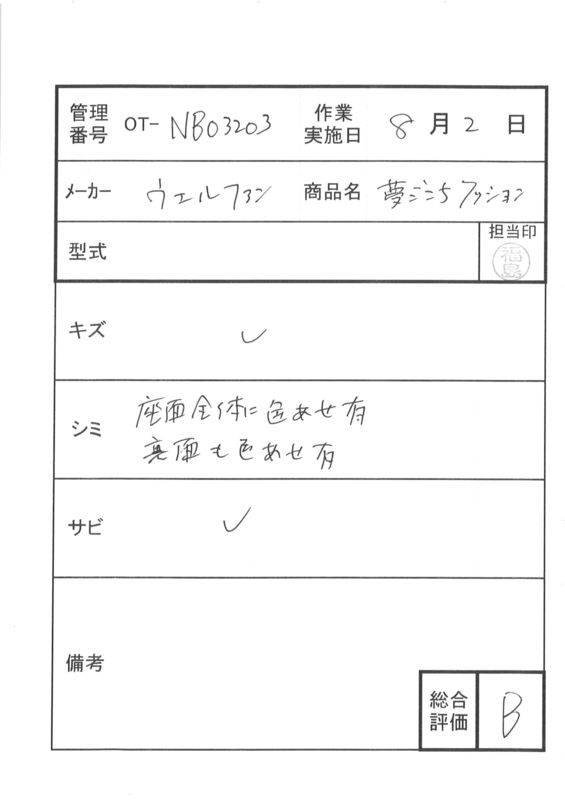 管理番号 OT- NB03203 作業実施日 8月2日
メーカー ウェルファン 商品名 夢ごこちクッション
型式 担当印
福島
キズ ✓
シミ 座面全体に色あせ有
裏面も色あせ有
サビ ✓
備考
総合評価 B